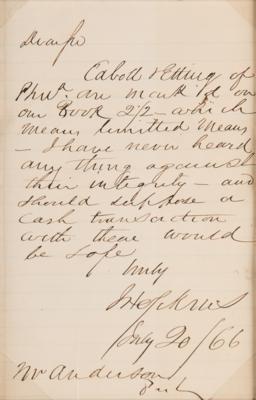 Dear Sir
Cabott & Etting of
Phila. are mark'd on
our Book 2½ - which
means limitted Means
- I have never heard
any thing against
their integrity - and
should suppose a
cash transaction
with them would
be safe
Truly
July 20/66
Mr Anderson